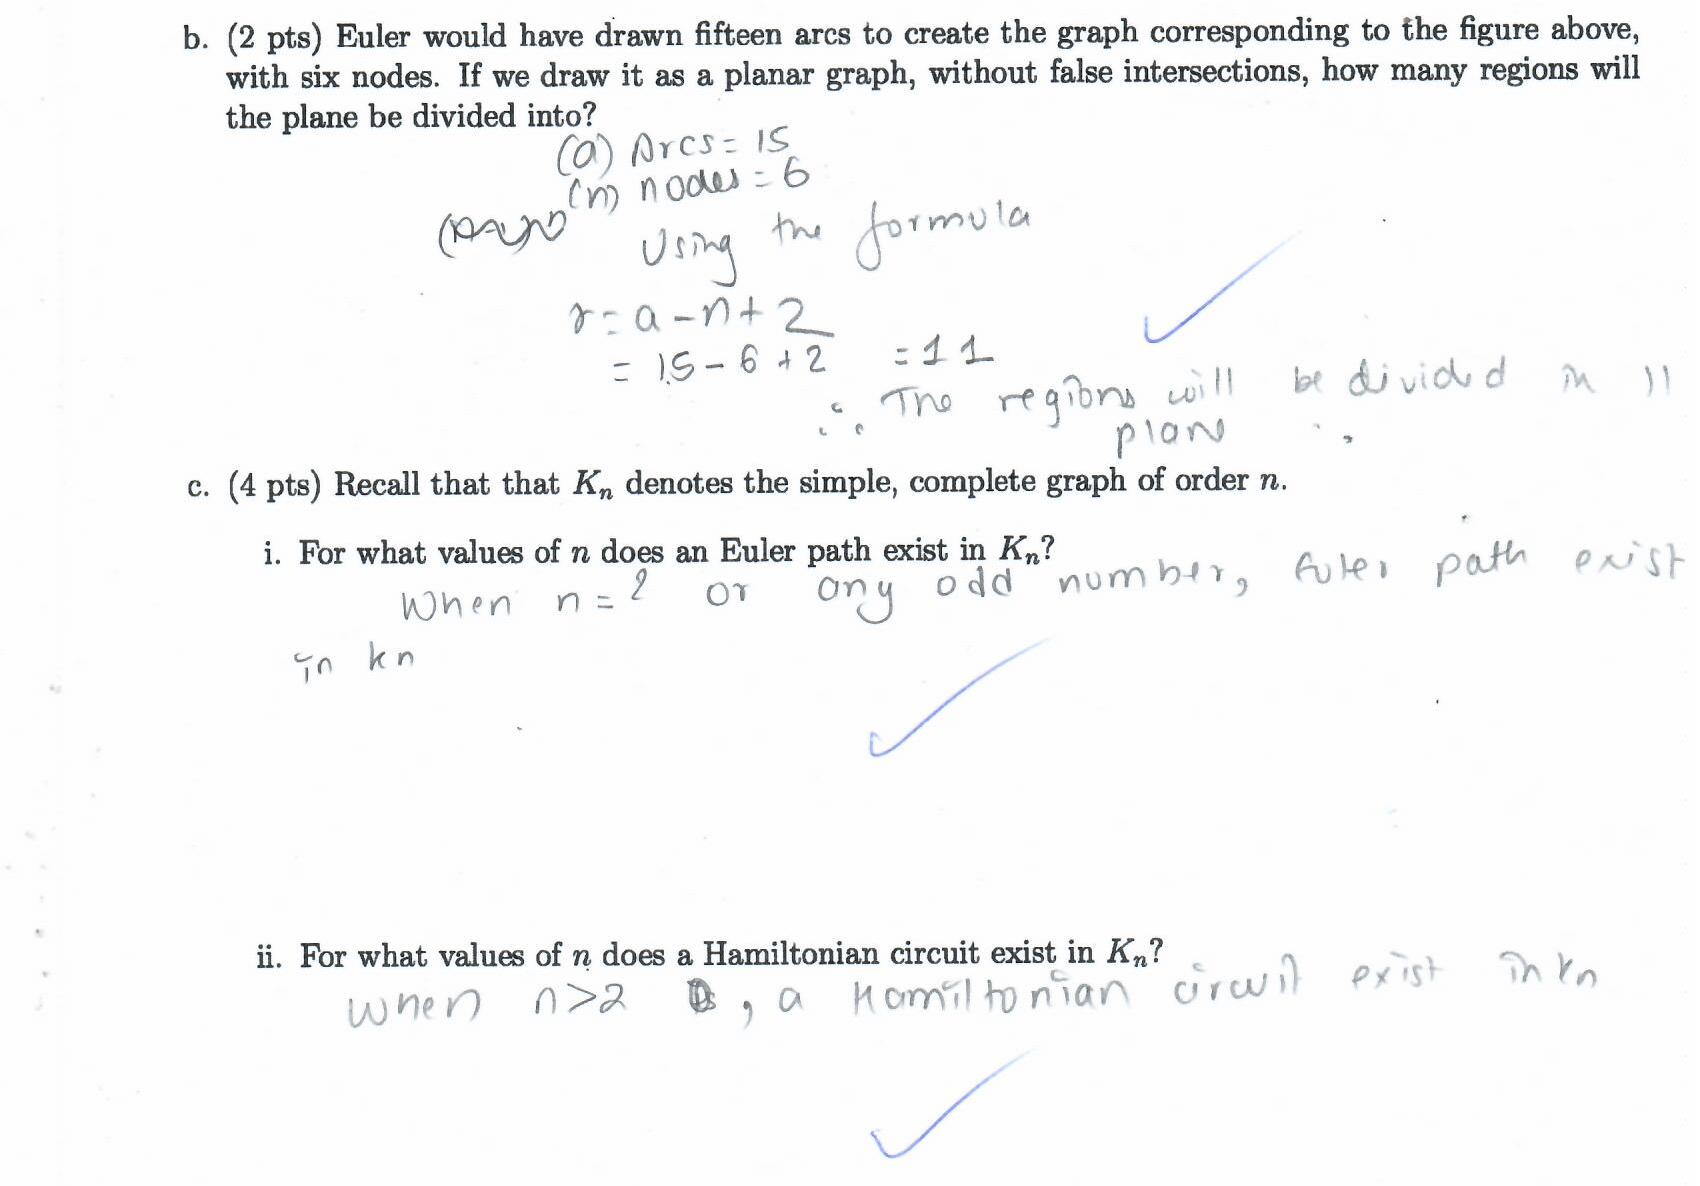 b. (2 pts) Euler would have drawn fifteen arcs to create the graph corresponding to the figure above,
with six nodes. If we draw it as a planar graph, without false intersections, how many regions will
the plane be divided into?
(a) Arcs = 15
(n) nodes = 6
Using the formula
r = a - n + 2
= 15 - 6 + 2 = 11
∴ The regions will be divided in 11
plane
c. (4 pts) Recall that that Kn denotes the simple, complete graph of order n.
i. For what values of n does an Euler path exist in Kn?
When n = 2 or any odd number, Euler path exist
in kn
ii. For what values of n does a Hamiltonian circuit exist in Kn?
when n>2 , a Hamiltonian circuit exist in kn